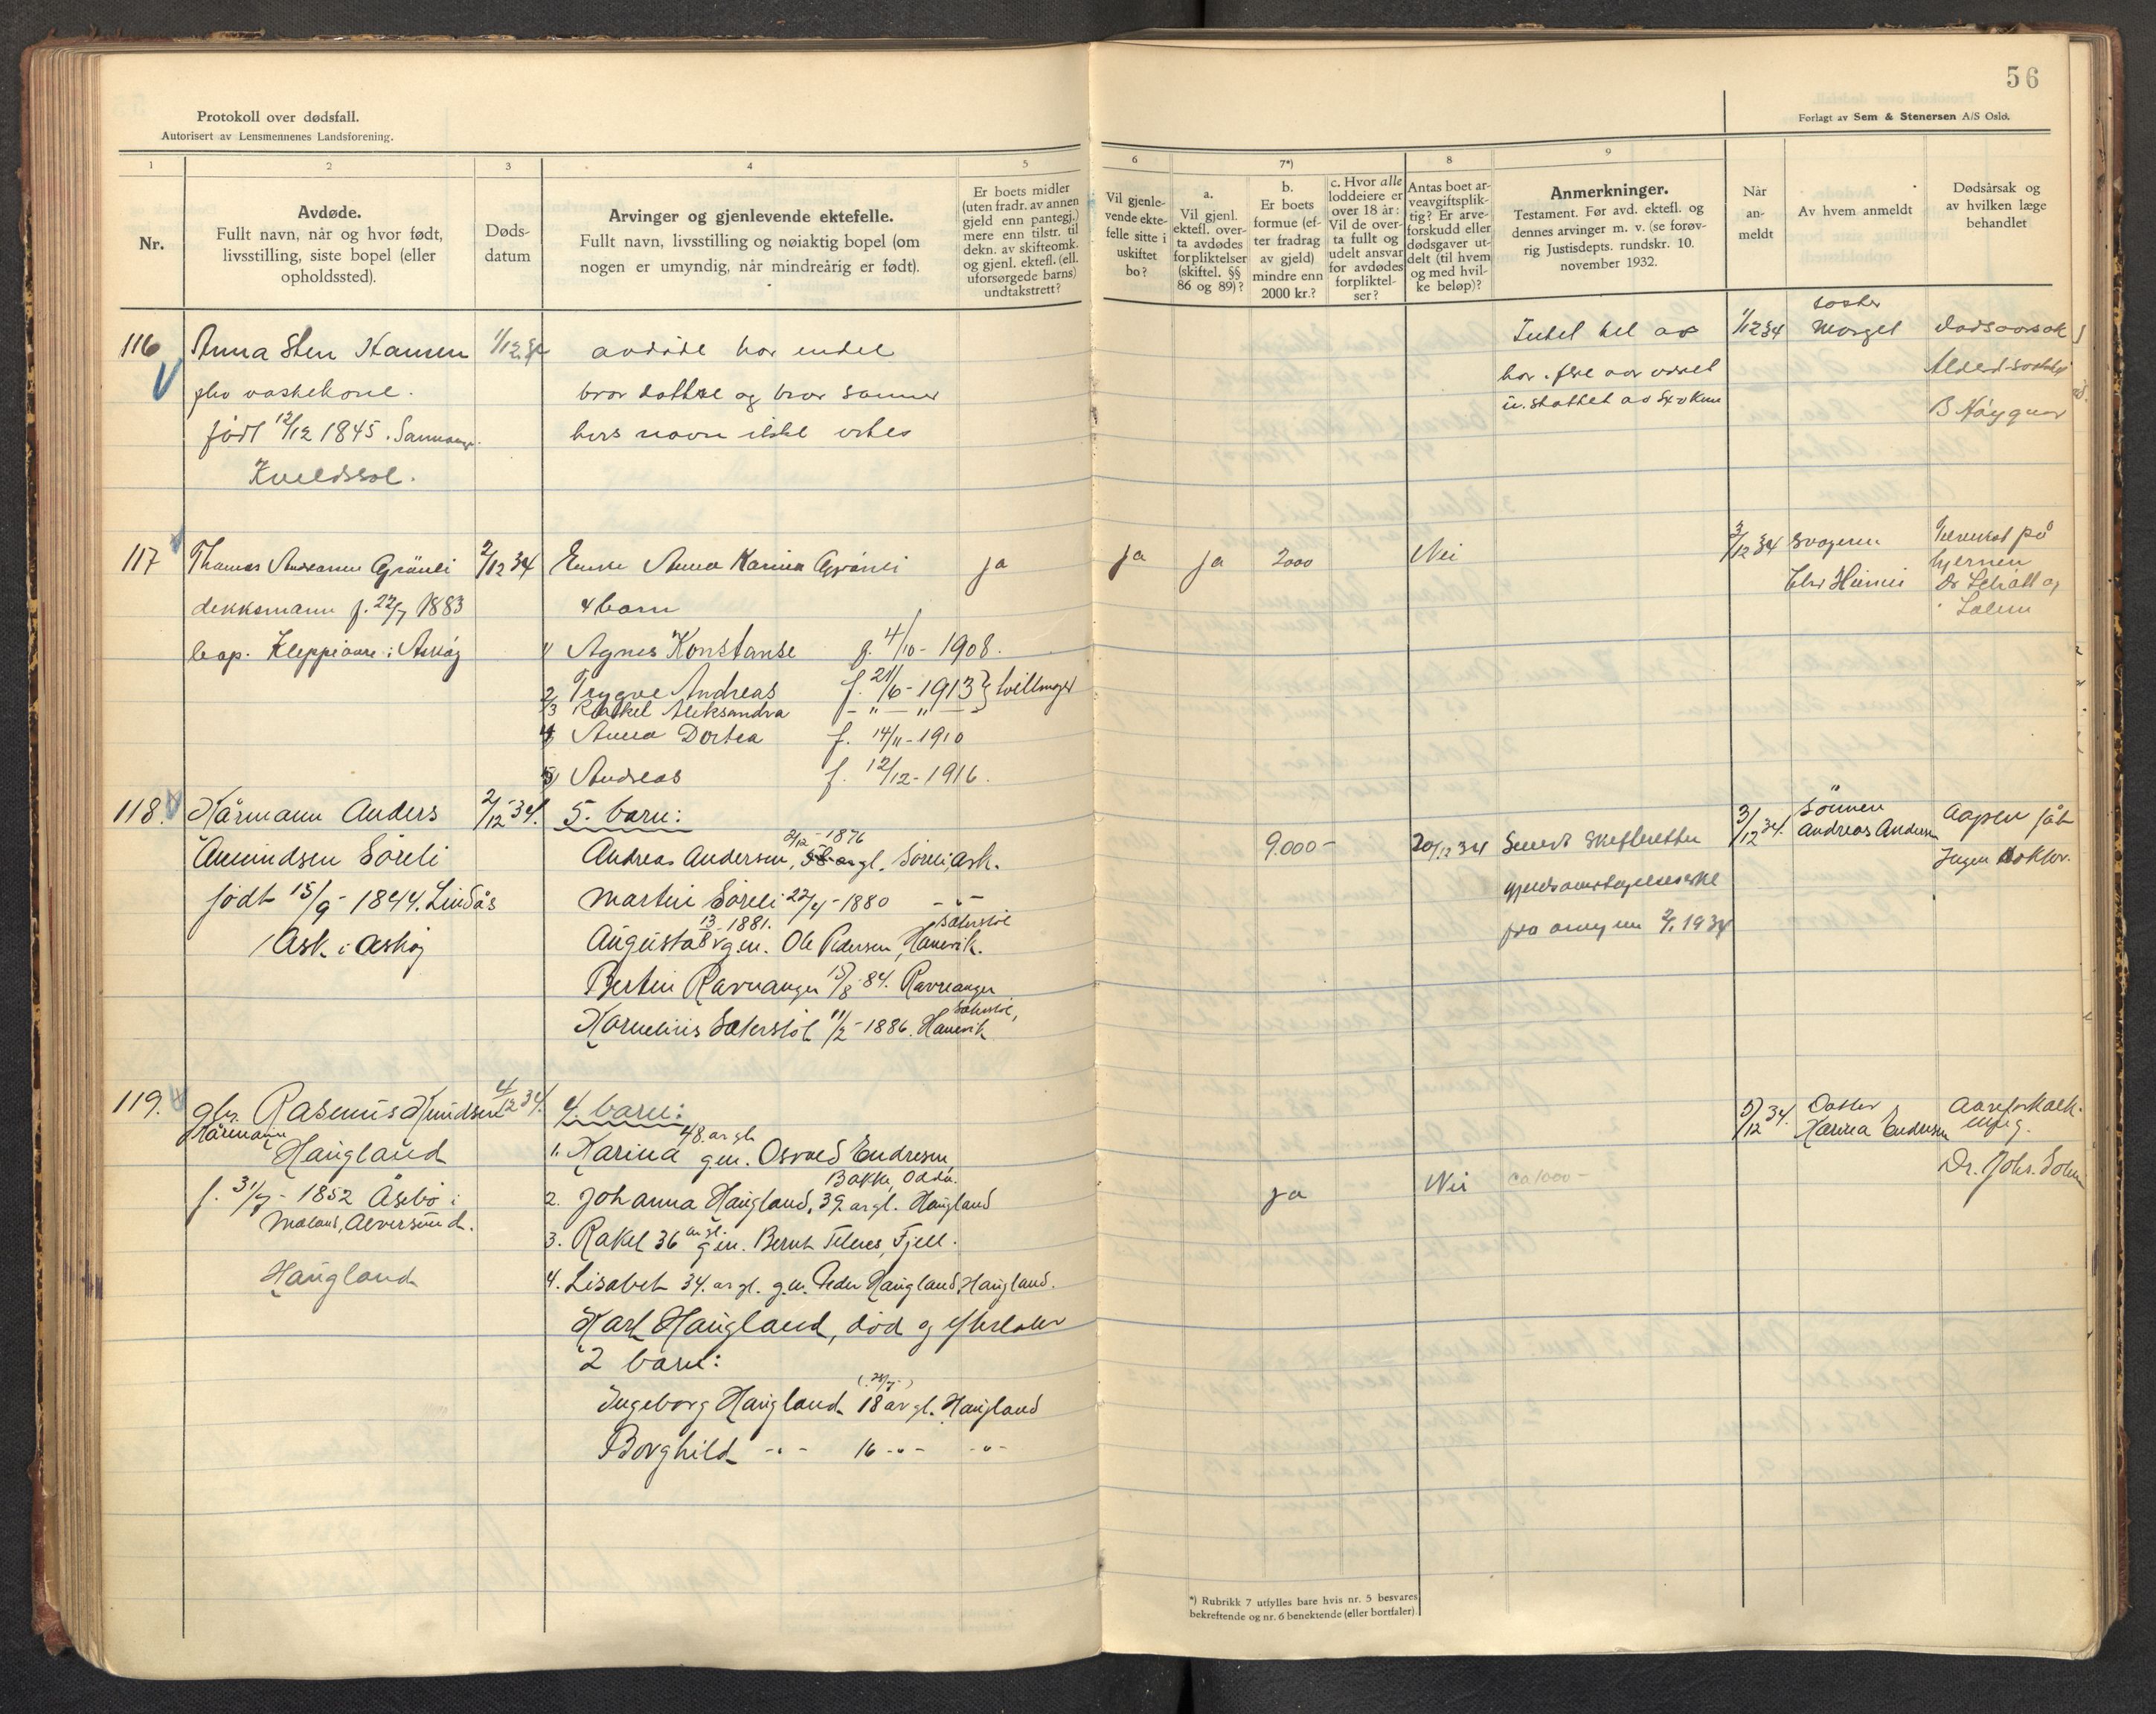 56
Protokoll over dødsfall.
Autorisert av Lensmennenes Landsforening.
Forlagt av Sem & Stenersen A/S Oslo.
1 2 3 4 5 6 7*) 8 9
Nr.
Avdøde.
Fullt navn, når og hvor født,
livsstilling, siste bopel (eller
opholdssted).
Døds-
datum
Arvinger og gjenlevende ektefelle.
Fullt navn, livsstilling og nøiaktig bopel (om
nogen er umyndig, når mindreårig er født).
Er boets midler
(uten fradr. av annen
gjeld enn pantegj.)
mere enn tilstr. til
dekn. av skifteomk.
og gjenl. ektefl. (ell.
uforsørgede barns)
undtakstrett?
Vil gjenle-
vende ekte-
felle sitte i
uskiftet
bo?
a.
Vil gjenl.
ektefl. over-
ta avdødes
forpliktelser
(skiftel. §§
86 og 89)?
b.
Er boets
formue (ef-
ter fradrag
av gjeld)
mindre enn
2000 kr.?
c. Hvor alle
loddeiere er
over 18 år:
Vil de over-
ta fullt og
udelt ansvar
for avdødes
forpliktel-
ser?
Antas boet ar-
veavgiftsplik-
tig? Er arve-
forskudd eller
dødsgaver ut-
delt (til hvem
og med hvil-
ke beløp)?
Anmerkninger.
Testament. Før avd. ektefl. og
dennes arvinger m. v. (se forøv-
rig Justisdepts. rundskr. 10.
november 1932.
Når
an-
meldt
Av hvem anmeldt
Dødsårsak og
av hvilken læge
behandlet
116 Anna Sten Hansen 1/12 34
fhv vaskekone.
født 12/12 1845.
Kveldssol.
avdøde har endel
bror dattre og bror sønner
hvis navn ikke vites
1/12 34
Dødsaarsak
117 Thomas Andreassen Grönli 2/12 34
dekksmann f. 22/7 1883
bop. Kleppe i Askøy
Enke Anna Karina Grönli ja
4 barn
1) Agnes Konstanse f. 4/10 - 1908.
2 Trygve Andreas f. 21/6 - 1913 } tvillinger
3 Rakel Aleksandra - " - " -
4 Anna Dortea f. 14/11 - 1910
5) Andreas f. 12/12 - 1916.
ja ja 2000 Nei
3/12 34 svogeren
på
hjernen
118. Kårmann Anders 2/12 - 34.
Amundsen Söreli
født 15/9 - 1844. Lindås
Ask i Askøy
5. barn:
2/12 - 1876
Andreas Andersen, Söreli, Ask.
Martin Söreli 22/4 - 1880 - " -
13/8 - 1881. Sæterstöl
Augusta gm. Ole Pedersen, Hanevik.
Bertin Ravnanger 15/8 - 84. Ravnanger
Kornelius Sæterstöl 11/2 - 1886. Sæterstöl, Hanevik
9.000 - 20/12 34 Sendt Skifteretten
3/12 34. Sönnen
Andreas Andersen
Ingen doktor.
119. gbr. Rasmus Knudsen 4/12 34.
Kårmann
Haugland
f. 31/7 - 1852 Åsebö i
Alversund.
Haugland
4. barn:
1. Karina 48 år gl. gm. Osvald Endresen
Bakke, Odda.
2. Johanna Haugland, 39 år gl. Haugland
3. Rakel 36 år gl. gm. Bernt Telnes, Fjell.
4. Lisabet 34. år gl. g.m. Peder Haugland, Haugland.
Karl Haugland, död og efterlater
2 barn:
Ingeborg Haugland 18 år gl. Haugland
Borghild - " - 16 - " - - " -
ja Nei ca 1000 -
5/12 34. Datter
Karina Endresen
Aareforkalk-
ning.
*) Rubrikk 7 utfylles bare hvis nr. 5 besvares
bekreftende og nr. 6 benektende (eller bortfaler)